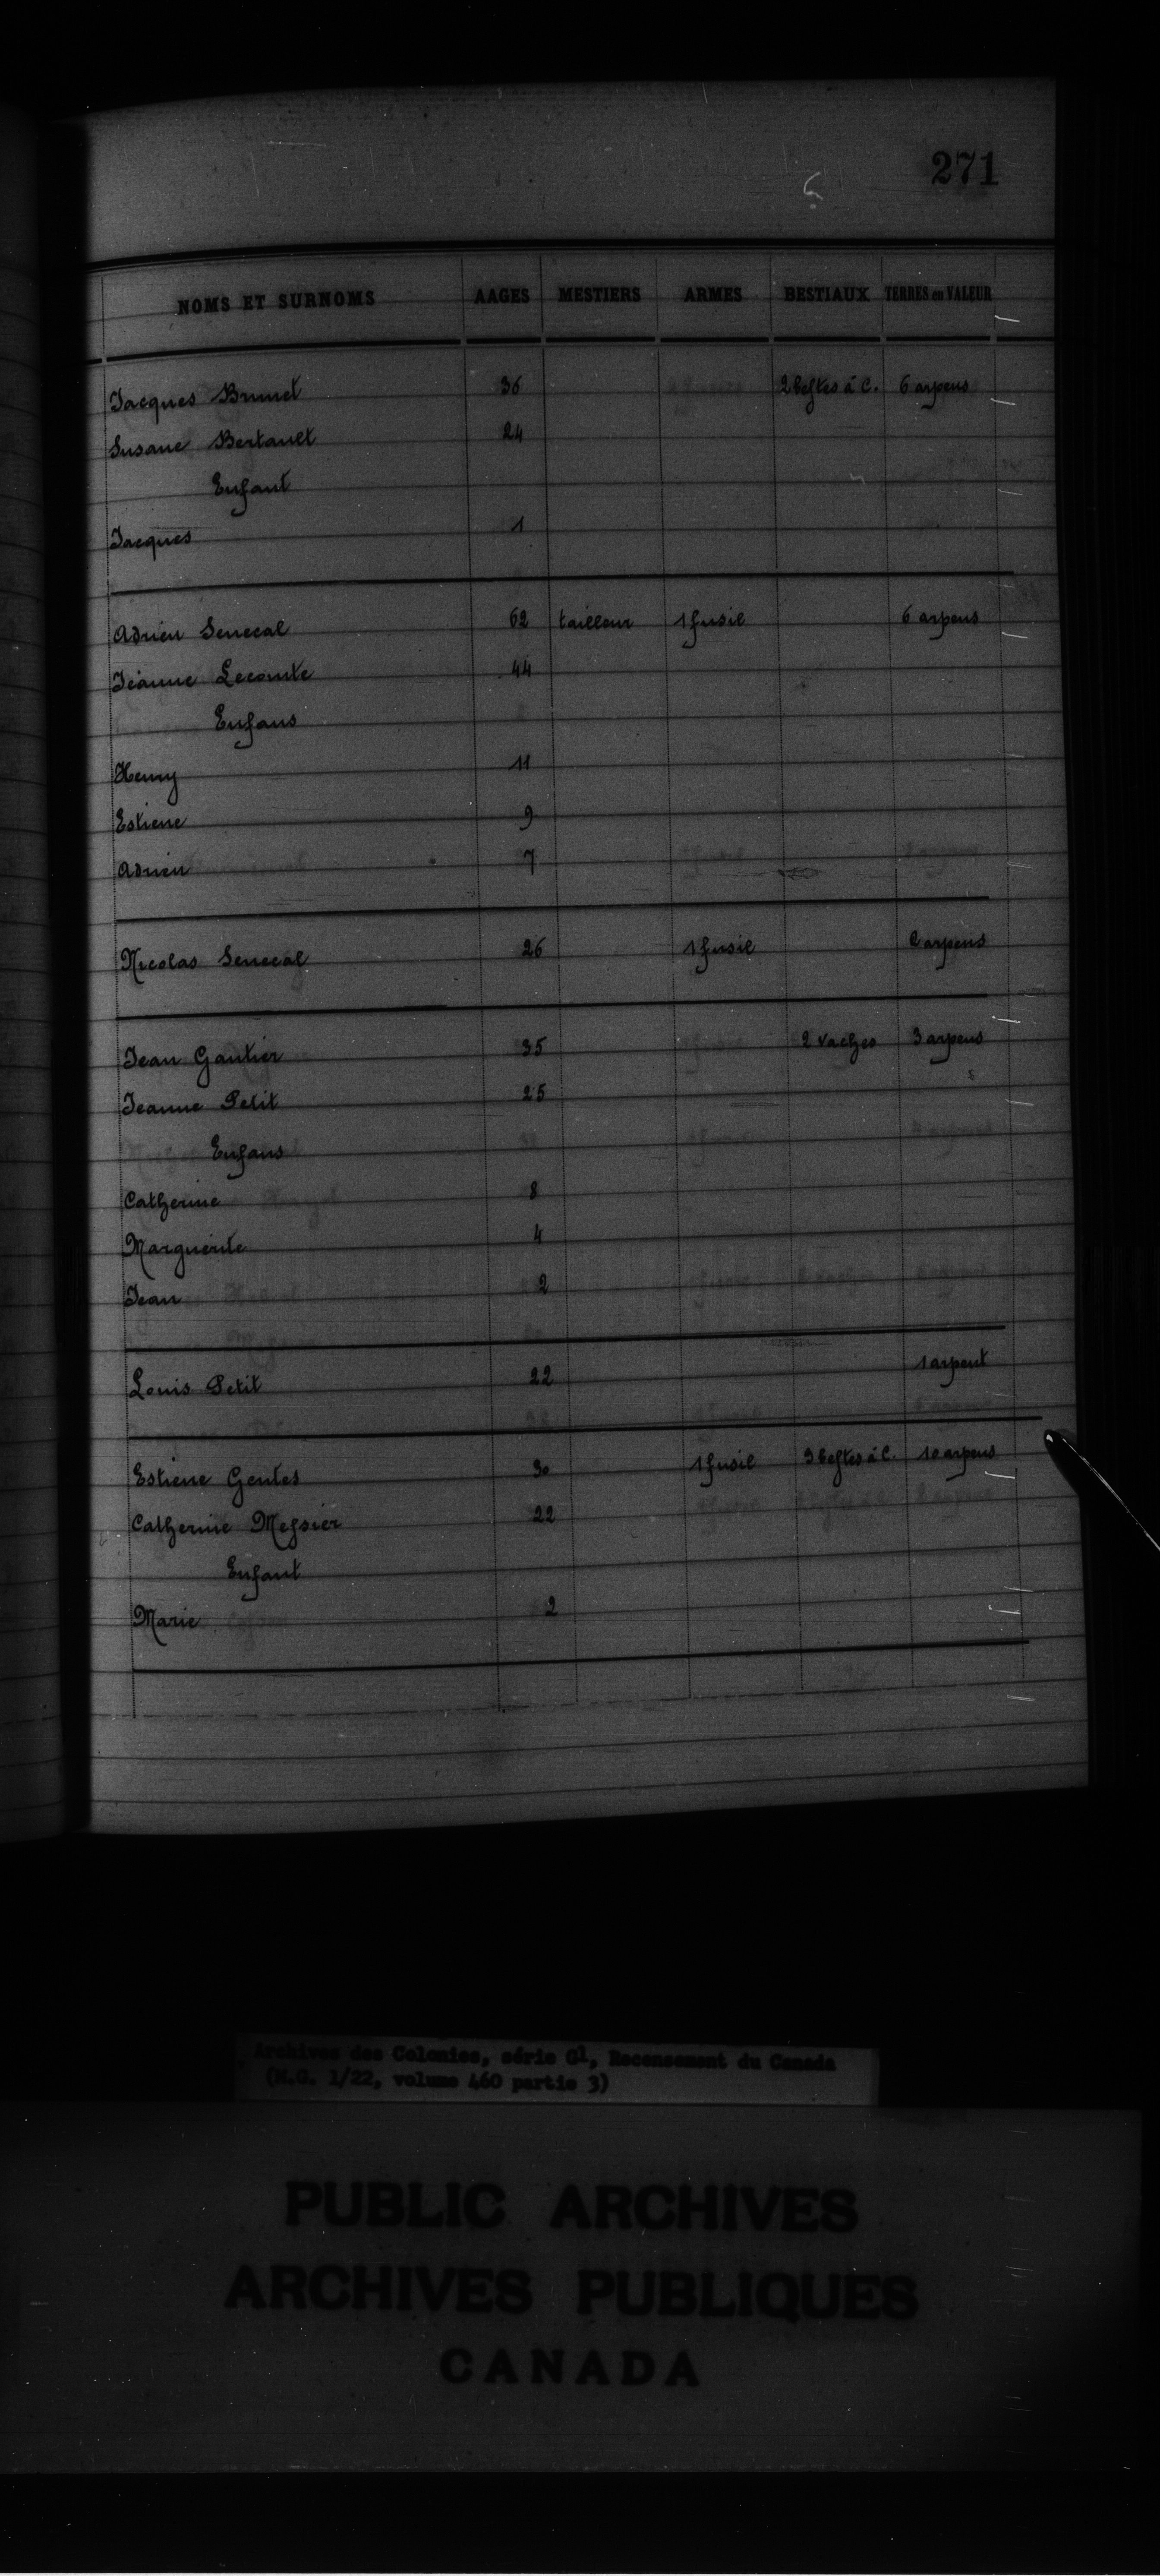 271
NOMS ET SURNOMS AAGES MESTIERS ARMES BESTIAUX TERRES en VALEUR
Jacques Brunet 36 2 bestes à C. 6 arpens
Susane Bertault 24
Enfant
Jacques 1
Adrien Senecal 62 tailleur 1 fusil 6 arpens
Jeanne Lecomte 44
Enfans
Henry 11
Estiene 9
Adrien 7
Nicolas Senecal 26 1 fusil 2 arpens
Jean Gautier 35 2 vaches 3 arpens
Jeanne Petit 25
Enfans
Catherine 8
Marguerite 4
Jean 2
Louis Petit 22 1 arpent
Estiene Gentes 30 1 fusil 3 bestes à C. 10 arpens
Catherine Messier 22
Enfant
Marie 2
Archives des Colonies, série G1, Recensement du Canada
(M.G. 1/22, volume 460 partie 3)
PUBLIC ARCHIVES
ARCHIVES PUBLIQUES
CANADA